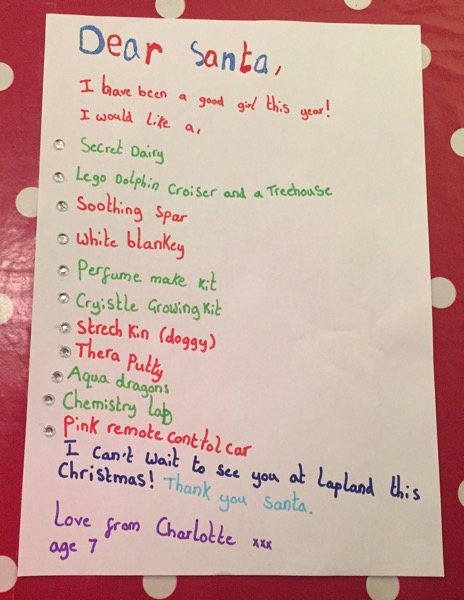 Dear Santa,
I have been a good girl this year!
I would like a,
Secret Dairy
Lego Dolphin Croiser and a Treehouse
Soothing Spar
White blankey
Perfume make kit
Cryistle Growing Kit
Strech Kin (doggy)
Thera Putty
Aqua dragons
Chemistry lab
Pink remote control car
I can't wait to see you at Lapland this
Christmas! Thank you Santa.
Love from Charlotte xxx
age 7